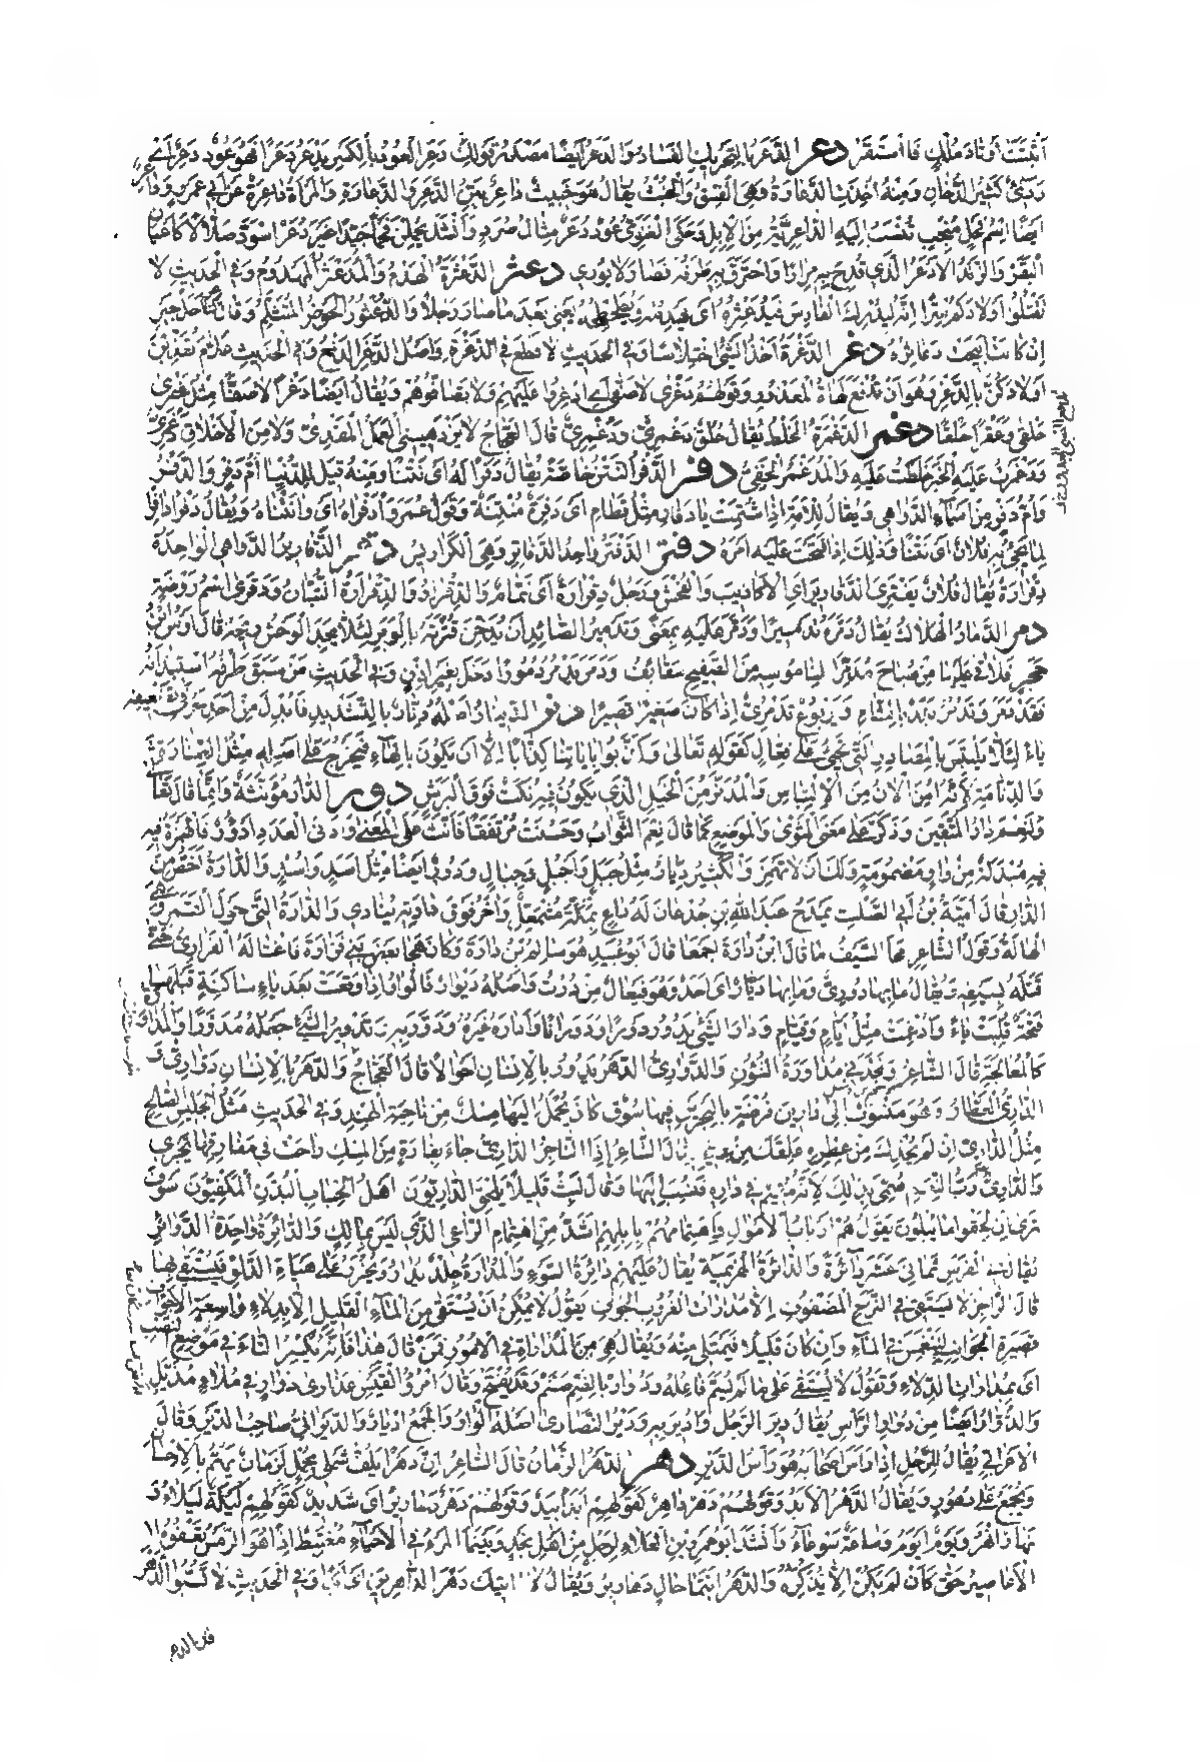 أَثْبَتَتْ أَوْتَادَ مُلْكٍ فَاسْتَقَرْ دعر الدَّعَرُ بِالتَّحْرِيكِ الْفَسَادُ وَالدَّعَرُ أَيْضًا مَصْدَرُ قَوْلِكَ دَعِرَ الْعُودُ بِالْكَسْرِ يَدْعَرُ دَعَرًا فَهُوَ عُودٌ دَعِرٌ أَيْ
رَدِيءٌ كَثِيرُ الدُّخَانِ وَمِنْهُ أُخِذَتِ الدَّعَارَةُ وَهِيَ الْفِسْقُ وَالْخُبْثُ يُقَالُ هُوَ خَبِيثٌ دَاعِرٌ بَيِّنُ الدَّعَرِ وَالدَّعَارَةِ وَالْمَرْأَةُ دَاعِرَةٌ
أَيْضًا اسْمُ فَحْلٍ مُنْجِبٍ تُنْسَبُ إِلَيْهِ الدَّاعِرِيَّةُ مِنَ الْإِبِلِ وَحَكَى الْغَنَوِيُّ عُودٌ دُعَرٌ مِثَالُ صُرَدٍ وَأَنْشَدَ
وَالزَّنْدُ الْأَدْعَرُ الَّذِي قُدِحَ بِهِ مِرَارًا وَاحْتَرَقَ طَرَفُهُ فَصَارَ لَا يُورِي دعثر الدَّعْثَرَةُ الْهَدْمُ وَالْمُدَعْثَرُ الْمَهْدُومُ وَفِي الْحَدِيثِ لَا
تَقْتُلُوا أَوْلَادَكُمْ سِرًّا إِنَّهُ لَيُدْرِكُ الْفَارِسَ فَيُدَعْثِرُهُ أَيْ يَهْدِمُهُ وَيُطَحْطِحُهُ يَعْنِي بَعْدَ مَا صَارَ رَجُلًا وَالدُّعْثُورُ الْحَوْضُ الْمُتَثَلِّمُ وَقَالَ
دَعَاثِرُهُ دغر الدَّغْرَةُ أَخْذُ الشَّيْءِ اخْتِلَاسًا وَفِي الْحَدِيثِ لَا قَطْعَ فِي الدَّغْرَةِ وَأَصْلُ الدَّغْرِ الدَّفْعُ وَفِي الْحَدِيثِ
أَوْلَادَكُنَّ بِالدَّغْرِ وَهُوَ أَنْ تُدْفَعَ لَهَاةُ الْمَعْذُورِ وَقَوْلُهُمْ دَغْرَى لَا صَفَّى أَيْ ادْغَرُوا عَلَيْهِمْ وَلَا تُصَافُّوهُمْ وَيُقَالُ أَيْضًا دَغْرًا لَا صَفًّا مِثْلُ عَقْرَى
حَلْقَى وَعَقْرًا حَلْقًا دغمر الدَّغْمَرَةُ الْخَلْطُ يُقَالُ خُلُقٌ دَغْمَرِيٌّ وَدُغْمُرِيٌّ قَالَ الْعَجَّاجُ لَا يَزْدَهِينِي الْعَمَلُ الْمَقْذِيُّ وَلَا مِنَ الْأَخْلَاقِ دَغْمَرِيُّ
وَدَغْمَرْتُ عَلَيْهِ الْخَبَرَ خَلَطْتُ عَلَيْهِ وَالْمُدَغْمَرُ الْخَفِيُّ دفر الدَّفَرُ النَّتْنُ خَاصَّةً يُقَالُ دَفْرًا لَهُ أَيْ نَتْنًا وَمِنْهُ قِيلَ لِلدُّنْيَا أُمُّ دَفْرٍ
وَأُمُّ دَفْرٍ مِنْ أَسْمَاءِ الدَّوَاهِي وَيُقَالُ لِلْأَمَةِ إِذَا شُتِمَتْ يَا دَفَارِ مِثْلُ قَطَامِ أَيْ دَفِرَةٌ مُنْتِنَةٌ وَقَوْلُ عُمَرَ وَادَفْرَاهُ أَيْ وَانَتْنَاهُ وَيُقَالُ دَفْرًا دَافِرًا
لِمَا يَجِيءُ بِهِ فُلَانٌ أَيْ نَتْنًا وَذَلِكَ إِذَا قَبَّحْتَ عَلَيْهِ أَمْرَهُ دفتر الدَّفْتَرُ وَاحِدُ الدَّفَاتِرِ وَهِيَ الْكَرَارِيسُ دقر الدَّقَارِيرُ الدَّوَاهِي الْوَاحِدَةُ
دِقْرَارَةٌ يُقَالُ فُلَانٌ يَفْتَرِي الدَّقَارِيرَ أَيِ الْأَكَاذِيبَ وَالْفُحْشَ وَرَجُلٌ دِقْرَارَةٌ أَيْ نَمَّامٌ وَالدِّقْرَارُ وَالدِّقْرَارَةُ التُّبَّانُ وَدَقَرَى اسْمُ رَوْضَةٍ
دمر الدَّمَارُ الْهَلَاكُ يُقَالُ دَمَّرَهُ تَدْمِيرًا وَدَمَّرَ عَلَيْهِ بِمَعْنًى وَتَدْمِيرُ الصَّائِدِ أَنْ يُدَخِّنَ قُتْرَتَهُ بِالْوَبَرِ لِئَلَّا يَجِدَ الْوَحْشُ رِيحَهُ قَالَ أَوْسُ بْنُ
حَجَرٍ فَلَاقَى عَلَيْهَا مِنْ صُبَاحَ مُدَمِّرًا لِنَامُوسِهِ مِنَ الصَّفِيحِ سَقَائِفُ وَدَمَرَ يَدْمُرُ دُمُورًا دَخَلَ بِغَيْرِ إِذْنٍ وَفِي الْحَدِيثِ مَنْ سَبَقَ طَرْفُهُ اسْتِئْذَانَهُ
فَقَدْ دَمَرَ وَتَدْمُرُ بَلَدٌ بِالشَّامِ وَيَرْبُوعٌ تَدْمُرِيٌّ إِذَا كَانَ صَغِيرًا قَصِيرًا دنر الدِّينَارُ أَصْلُهُ دِنَّارٌ بِالتَّشْدِيدِ فَأُبْدِلَ مِنْ أَحَدِ حَرْفَيْ تَضْعِيفِهِ
يَاءً لِئَلَّا يَلْتَبِسَ بِالْمَصَادِرِ الَّتِي تَجِيءُ عَلَى فِعَّالٍ كَقَوْلِهِ تَعَالَى وَكَذَّبُوا بِآيَاتِنَا كِذَّابًا إِلَّا أَنْ يَكُونَ بِالْهَاءِ فَيُخْرَجُ عَلَى أَصْلِهِ مِثْلُ الصِّنَّارَةِ
وَالدِّنَّامَةِ لِأَنَّهُ أُمِنَ الْآنَ مِنَ الْإِلْتِبَاسِ وَالْمُدَنَّرُ مِنَ الْخَيْلِ الَّذِي يَكُونُ فِيهِ نُكَتٌ فَوْقَ الْبَرَشِ دور الدَّارُ مُؤَنَّثَةٌ وَإِنَّمَا قَالَ تَعَالَى
وَلَنِعْمَ دَارُ الْمُتَّقِينَ وَذَكَّرَ عَلَى مَعْنَى الْمَثْوَى وَالْمَوْضِعِ كَمَا قَالَ نِعْمَ الثَّوَابُ وَحَسُنَتْ مُرْتَفَقًا فَأَنَّثَ عَلَى الْمَعْنَى وَأَدْنَى الْعَدَدِ أَدْؤُرٌ فَالْهَمْزَةُ
فِيهِ مُبْدَلَةٌ مِنْ وَاوٍ مَضْمُومَةٍ وَلَكَ أَنْ لَا تَهْمِزَ وَالْكَثِيرُ دِيَارٌ مِثْلُ جَبَلٍ وَأَجْبُلٍ وَجِبَالٍ وَدُورٌ أَيْضًا مِثْلُ أَسَدٍ وَأُسْدٍ وَالدَّارَةُ أَخَصُّ مِنَ
الدَّارِ قَالَ أُمَيَّةُ بْنُ أَبِي الصَّلْتِ يَمْدَحُ عَبْدَ اللهِ بْنَ جُدْعَانَ لَهُ دَاعٍ بِمَكَّةَ مُشْمَعِلٌّ وَآخَرُ فَوْقَ دَارَتِهِ يُنَادِي وَالدَّارَةُ الَّتِي حَوْلَ الْقَمَرِ وَهِيَ
الْهَالَةُ وَقَوْلُ الشَّاعِرِ مَحَا السَّيْفُ مَا قَالَ ابْنُ دَارَةَ أَجْمَعَا قَالَ أَبُو عُبَيْدٍ هُوَ سَالِمُ بْنُ دَارَةَ وَكَانَ هَجَا بَعْضَ بَنِي فَزَارَةَ فَاغْتَالَهُ الْفَزَارِيُّ حَتَّى
قَتَلَهُ بِسَيْفِهِ وَيُقَالُ مَا بِهَا دُورِيٌّ وَمَا بِهَا دَيَّارٌ أَيْ أَحَدٌ وَهُوَ فَيْعَالٌ مِنْ دُرْتُ وَأَصْلُهُ دَيْوَارٌ قَالُوا وَإِذَا وَقَعَتْ بَعْدَ يَاءٍ سَاكِنَةٍ قَبْلَهَا
فَتْحَةٌ قُلِبَتْ يَاءً وَأُدْغِمَتْ مِثْلُ أَيَّامٍ وَقَيَّامٍ وَدَارَ الشَّيْءُ يَدُورُ دَوْرًا وَدَوَرَانًا وَأَدَارَهُ غَيْرُهُ وَدَوَّرَ بِهِ وَتَدْوِيرُ الشَّيْءِ جَعْلُهُ مُدَوَّرًا وَالْمُدَاوَرَةُ
كَالْمُعَالَجَةِ قَالَ الشَّاعِرُ وَنَجَّذَنِي مُدَاوَرَةُ الشُّؤُونِ وَالدَّوَّارِيُّ الدَّهْرُ يَدُورُ بِالْإِنْسَانِ أَحْوَالًا قَالَ الْعَجَّاجُ وَالدَّهْرُ بِالْإِنْسَانِ دَوَّارِيُّ وَ
الدَّارِيُّ الْعَطَّارُ وَهُوَ مَنْسُوبٌ إِلَى دَارِينَ فُرْضَةٍ بِالْبَحْرَيْنِ فِيهَا سُوقٌ كَانَ يُحْمَلُ إِلَيْهَا مِسْكٌ مِنْ نَاحِيَةِ الْهِنْدِ وَفِي الْحَدِيثِ مَثَلُ الْجَلِيسِ الصَّالِحِ
مِثْلُ الدَّارِيِّ إِنْ لَمْ يُحْذِكَ مِنْ عِطْرِهِ عَلِقَكَ مِنْ رِيحِهِ قَالَ الشَّاعِرُ إِذَا التَّاجِرُ الدَّارِيُّ جَاءَ بِفَارَةٍ مِنَ الْمِسْكِ رَاحَتْ فِي مَفَارِقِهَا تَجْرِي
وَالدَّارِيُّ رَبُّ النَّعَمِ سُمِّيَ بِذَلِكَ لِأَنَّهُ مُقِيمٌ فِي دَارِهِ فَنُسِبَ إِلَيْهَا وَقَالَ لَبِّثْ قَلِيلًا يَلْحَقِ الدَّارِيُّونَ أَهْلُ الْجِبَابِ الْبُدَّنِ الْمَكْفِيُّونَ سَوْفَ
تَرَى إِنْ لَحِقُوا مَا يُبْلُونَ يَقُولُ هُمْ أَرْبَابُ الْأَمْوَالِ وَاهْتِمَامُهُمْ بِإِبِلِهِمْ أَشَدُّ مِنَ اهْتِمَامِ الرَّاعِي الَّذِي لَيْسَ بِمَالِكٍ وَالدَّائِرَةُ وَاحِدَةُ الدَّوَائِرِ
يُقَالُ فِي الْفَرَسِ ثَمَانِيَ عَشْرَةَ دَائِرَةً وَالدَّائِرَةُ الْهَزِيمَةُ يُقَالُ عَلَيْهِمْ دَائِرَةُ السَّوْءِ وَالْمُدَارَةُ جِلْدٌ يُدَارُ وَيُخْرَزُ عَلَى هَيْأَةِ الدَّلْوِ فَيُسْتَقَى بِهَا
قَالَ الرَّاجِزُ لَا يَسْتَقِي فِي النَّزَحِ الْمَضْفُوفِ إِلَّا مُدَارَاتُ الْغُرُوبِ الْجُوفِ يَقُولُ لَا يُمْكِنُ أَنْ يُسْتَقَى مِنَ الْمَاءِ الْقَلِيلِ إِلَّا بِدِلَاءٍ وَاسِعَةِ الْأَجْوَافِ
قَصِيرَةِ الْجَوَانِبِ لِتَنْغَمِسَ فِي الْمَاءِ وَإِنْ كَانَ قَلِيلًا فَتَمْتَلِئَ مِنْهُ وَيُقَالُ هُوَ مِنَ الْمُدَارَاةِ فِي الْأُمُورِ فَمَنْ قَالَ هَذَا فَإِنَّهُ يَكْسِرُ التَّاءَ فِي مَوْضِعِ النَّصْبِ
أَيْ بِمُدَارَاةِ الدِّلَاءِ وَتَقُولُ لَا يُسْتَقَى عَلَى مَا لَمْ يُسَمَّ فَاعِلُهُ وَدُوَارٌ بِالضَّمِّ صَنَمٌ وَقَدْ يُفْتَحُ وَقَالَ امْرُؤُ الْقَيْسِ عَذَارَى دُوَارٍ فِي مُلَاءٍ مُذَيَّلِ
وَالدُّوَارُ أَيْضًا مِنْ دُوَارِ الرَّأْسِ يُقَالُ دِيرَ بِالرَّجُلِ وَأُدِيرَ بِهِ وَدَيْرُ النَّصَارَى أَصْلُهُ الْوَاوُ وَالْجَمْعُ أَدْيَارٌ وَالدَّيْرَانِيُّ صَاحِبُ الدَّيْرِ وَقَالَ ابْنُ
الْأَعْرَابِيِّ يُقَالُ لِلرَّجُلِ إِذَا رَأَسَ أَصْحَابَهُ هُوَ رَأْسُ الدَّيْرِ دهر الدَّهْرُ الزَّمَانُ قَالَ الشَّاعِرُ إِنَّ دَهْرًا يَلُفُّ شَمْلِي بِجُمْلٍ لَزَمَانٌ يَهُمُّ بِالْإِحْسَانِ
وَيُجْمَعُ عَلَى دُهُورٍ وَيُقَالُ الدَّهْرُ الْأَبَدُ وَقَوْلُهُمْ دَهْرٌ دَاهِرٌ كَقَوْلِهِمْ أَبَدٌ أَبِيدٌ وَقَوْلُهُمْ دَهْرٌ دَهَارِيرُ أَيْ شَدِيدٌ كَقَوْلِهِمْ لَيْلَةٌ لَيْلَاءُ وَ
نَهَارٌ أَنْهَرُ وَيَوْمٌ أَيْوَمُ وَسَاعَةٌ سَوْعَاءُ وَأَنْشَدَ أَبُو عَمْرِو بْنُ الْعَلَاءِ لِرَجُلٍ مِنْ أَهْلِ نَجْدٍ وَبَيْنَمَا الْمَرْءُ فِي الْأَحْيَاءِ مُغْتَبِطٌ إِذَا هُوَ الرَّمْسُ تَعْفُوهُ
الْأَعَاصِيرُ حَتَّى كَأَنْ لَمْ يَكُنْ إِلَّا تَذَكُّرُهُ وَالدَّهْرُ أَيَّتَمَا حَالٍ دَهَارِيرُ وَيُقَالُ لَا آتِيكَ دَهْرَ الدَّاهِرِينَ أَيْ أَبَدًا وَفِي الْحَدِيثِ لَا تَسُبُّوا الدَّهْرَ